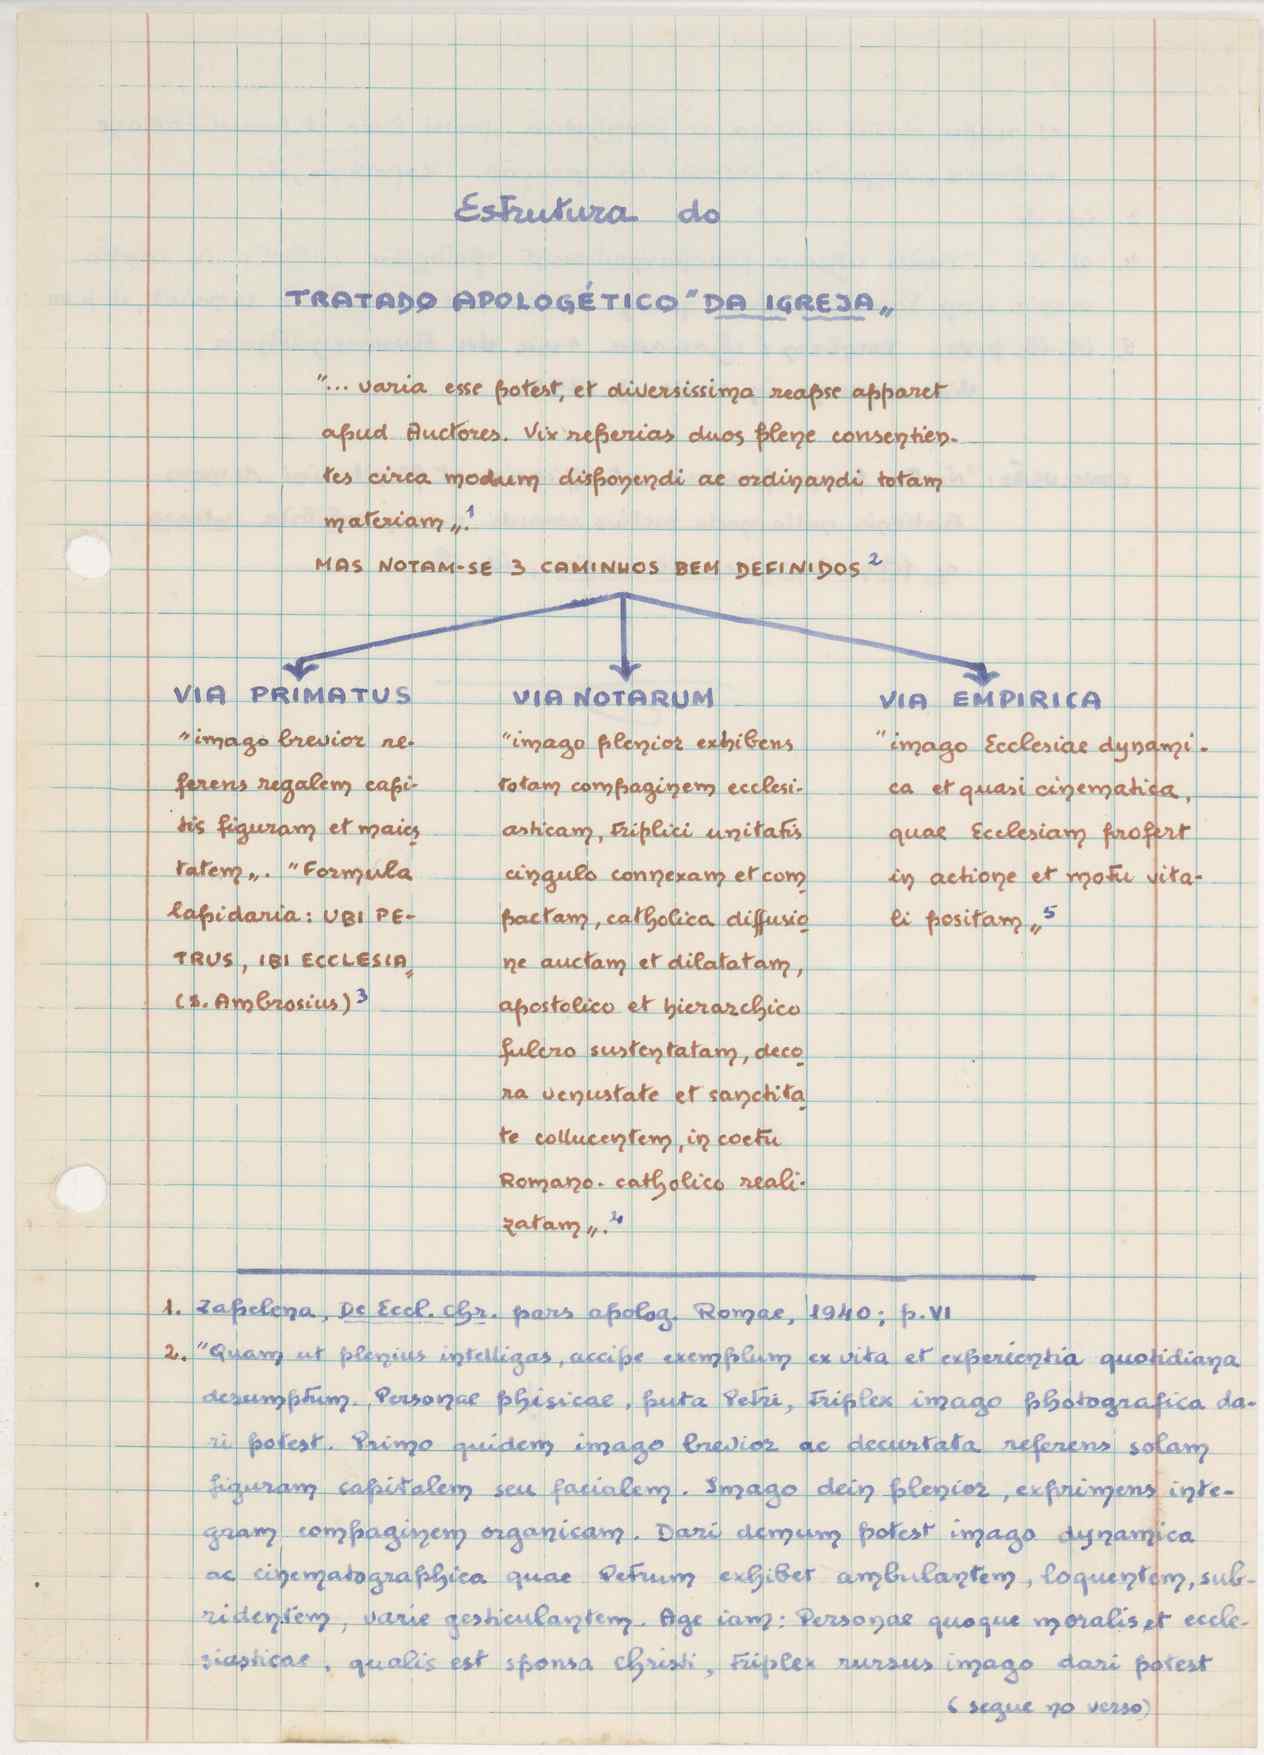 Estrutura do
TRATADO APOLOGÉTICO "DA IGREJA„
"... varia esse potest, et diversissima reapse apparet
apud Auctores. Vix reperias duos plene consentien-
tes circa modum disponendi ac ordinandi totam
materiam„.¹
MAS NOTAM-SE 3 CAMINHOS BEM DEFINIDOS²
VIA PRIMATUS
"imago brevior re-
ferens regalem capi-
tis figuram et maies
tatem„. "Formula
lapidaria: UBI PE-
TRUS, IBI ECCLESIA„
(S. Ambrosius)³
VIA NOTARUM
"imago plenior exhibens
totam compaginem ecclesi-
asticam, triplici unitatis
cingulo connexam et com
pactam, catholica diffusio
ne auctam et dilatatam,
apostolico et hierarchico
fulcro sustentatam, deco
ra venustate et sanctita
te collucentem, in coetu
Romano-catholico reali-
zatam„.⁴
VIA EMPIRICA
"imago Ecclesiae dynami-
ca et quasi cinematica,
quae Ecclesiam profert
in actione et motu vita-
li positam„⁵
1. Zapelena, De Eccl. Chr. pars apolog. Romae, 1940; p. VI
2. "Quam ut plenius intelligas, accipe exemplum ex vita et experientia quotidiana
desumptum. Personae phisicae, puta Petri, triplex imago photografica da-
ri potest. Primo quidem imago brevior ac decurtata referens solam
figuram capitalem seu facialem. Imago dein plenior, exprimens inte-
gram compaginem organicam. Dari demum potest imago dynamica
ac cinematographica quae Petrum exhibet ambulantem, loquentem, sub-
ridentem, varie gesticulantem. Age iam: Personae quoque moralis et eccle-
siasticae, qualis est sponsa Christi, triplex rursus imago dari potest
(segue no verso)